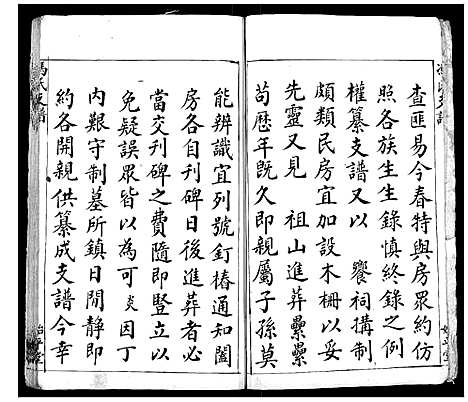 查匪易今春特與房眾約仿
照各族生生錄慎終錄之例
權纂支譜又以　饗祠搆制
頗類民房宜加設木柵以妥
先靈又見　祖山進葬纍纍
苟歷年既久即親屬子孫莫
能辨識宜列號釘樁通知闔
房各自刊碑日後進葬者必
當交刊碑之費隨即豎立以
免疑誤眾皆以為可炎因丁
內艱守制墓所鎮日閒靜即
約各開親供纂成支譜今幸
馮氏支譜